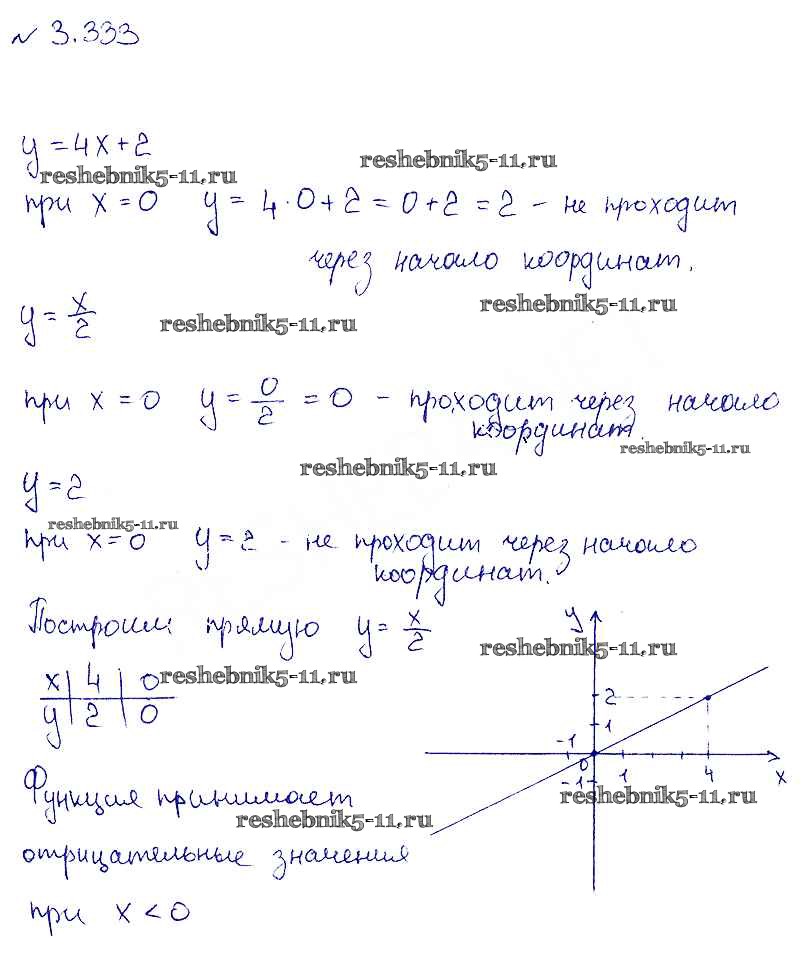 № 3.333
y = 4x + 2
reshebnik5-11.ru
reshebnik5-11.ru
при x = 0 y = 4 · 0 + 2 = 0 + 2 = 2 – не проходит
через начало координат.
y = x/2
reshebnik5-11.ru
reshebnik5-11.ru
при x = 0 y = 0/2 = 0 – проходит через начало
координат.
reshebnik5-11.ru
reshebnik5-11.ru
y = 2
reshebnik5-11.ru
при x = 0 y = 2 – не проходит через начало
координат.
Построим прямую y = x/2
reshebnik5-11.ru
x | 4 | 0
reshebnik5-11.ru
y | 2 | 0
y
2
1
-1
0
-1
1
4
x
Функция принимает
reshebnik5-11.ru
reshebnik5-11.ru
отрицательные значения
при x < 0